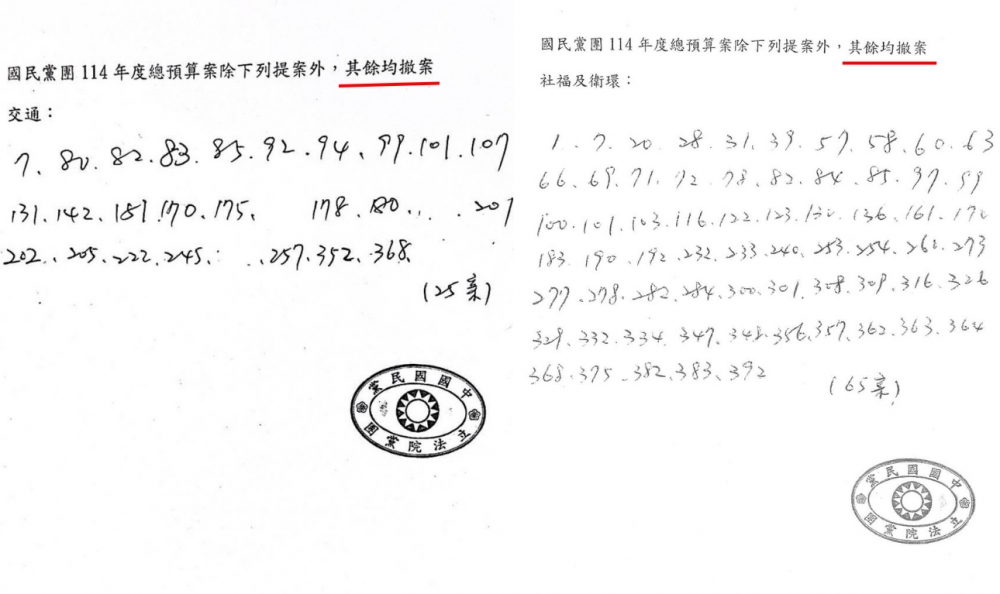 國民黨團 114 年度總預算案除下列提案外，其餘均撤案
交通：
7、80、82、83、85、92、94、99、101、107
131、142、151、170、175、 178、180、 、201
202、205、222、245、 、257、352、368
(25案)
中國國民黨
立法院黨團
國民黨團 114 年度總預算案除下列提案外，其餘均撤案
社福及衛環：
1、7、20、28、31、39、57、58、60、63
66、69、71、72、78、82、84、85、97、99
100、101、103、116、122、123、130、136、161、170
183、190、192、232、233、240、253、254、262、273
277、278、282、284、300、301、308、309、316、326
329、332、334、347、348、356、357、362、363、364
368、375、382、383、392
(65案)
中國國民黨
立法院黨團